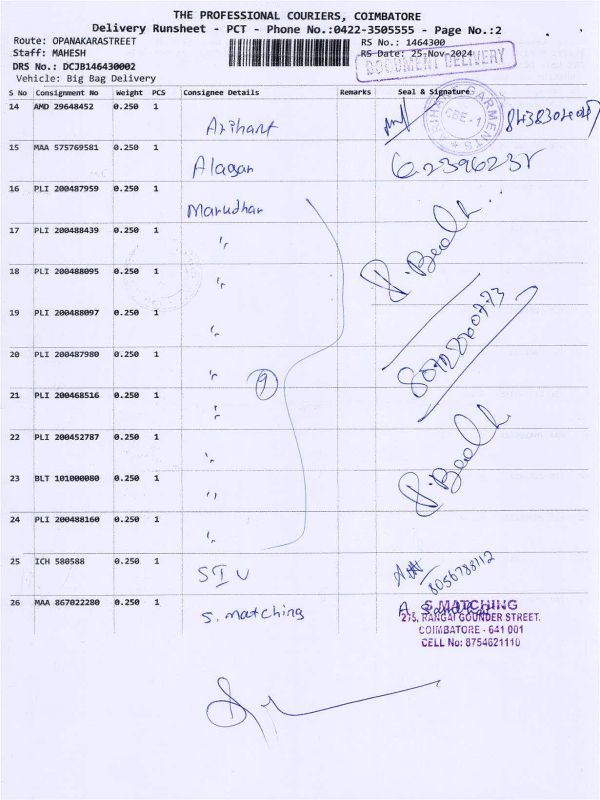 THE PROFESSIONAL COURIERS, COIMBATORE
Delivery Runsheet - PCT - Phone No.:0422-3505555 - Page No.:2
Route: OPANAKARASTREET
RS No.: 1464300
Staff: MAHESH
RS Date: 25-Nov-2024
DRS No.: DCJB146430002
DOCUMENT DELIVERY
Vehicle: Big Bag Delivery
S No Consignment No Weight PCS Consignee Details Remarks Seal & Signature
14 AMD 29648452 0.250 1 Arihant
ARIHANT GARMENTS CBE-1
15 MAA 575769581 0.250 1 Alagar
16 PLI 200487959 0.250 1 Marudhar
17 PLI 200488439 0.250 1 "
18 PLI 200488095 0.250 1 "
19 PLI 200488097 0.250 1 "
20 PLI 200487980 0.250 1 "
9
21 PLI 200468516 0.250 1 "
8072200773
22 PLI 200452787 0.250 1 "
23 BLT 101000080 0.250 1 "
24 PLI 200488160 0.250 1 "
25 ICH 580588 0.250 1 STU 8056788112
26 MAA 867022280 0.250 1 S. matching
S.MATCHING
275, RANGAI GOUNDER STREET.
COIMBATORE - 641 001
CELL No: 8754621110